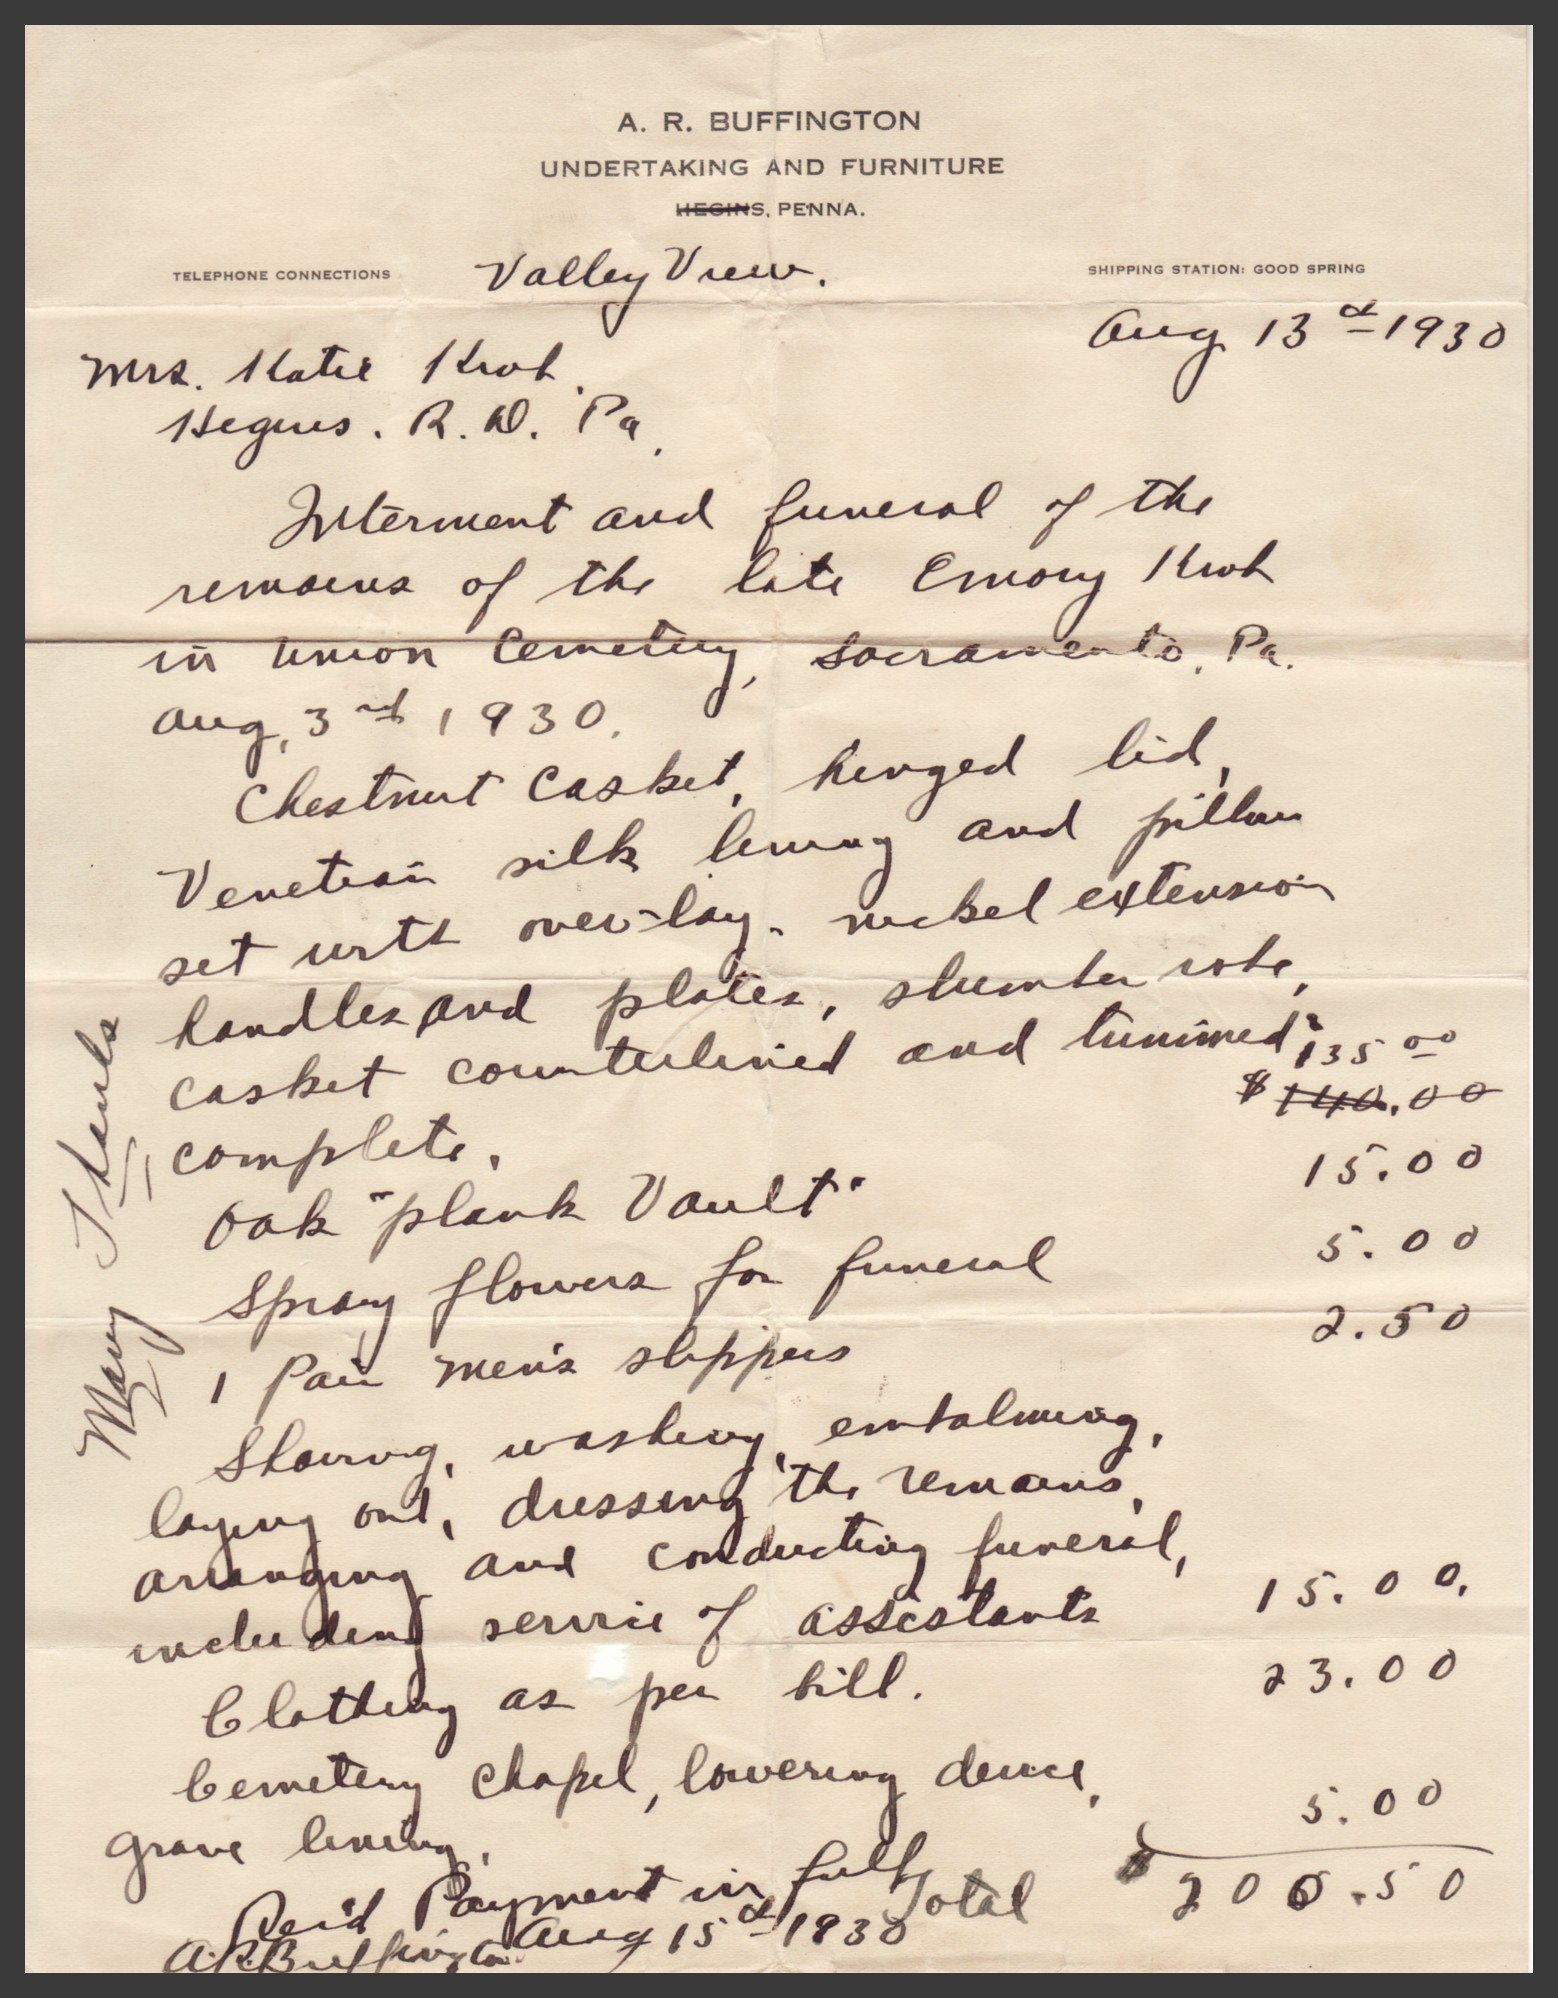 A. R. BUFFINGTON
UNDERTAKING AND FURNITURE
HEGINS, PENNA.
TELEPHONE CONNECTIONS
Valley View.
SHIPPING STATION: GOOD SPRING
Aug 13 d 1930
Mrs. Katie Kroh.
Hegins. R. D. Pa.
Interment and funeral of the
remains of the late Emory Kroh
in Union Cemetery, Sacramento, Pa.
Aug, 3rd 1930.
Chestnut Casket, hinged lid,
Venetian silk lining and pillow
set with over-lay. nickel extension
handles and plates, slumber robe,
casket counterlined and trimmed
135 00
complete. $ 140.00
Oak "plank Vault" 15.00
Spray flowers for funeral 5.00
1 Pair men's slippers 2.50
Shaving, washing, embalming,
laying out, dressing the remains,
arranging and conducting funeral,
including service of assistants 15.00.
Clothing as per bill. 23.00
Cemetery chapel, lowering device,
grave lining. 5.00
Total $ 200.50
Rec'd Payment in full
Aug 15 d 1930
A.R. Buffington
Mary